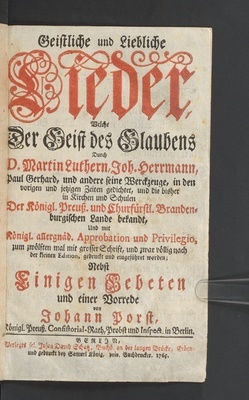 Geistliche und Liebliche
Lieder,
Welche
Der Geist des Glaubens
Durch
D. Martin Luthern, Joh. Herrmann,
Paul Gerhard, und andere seine Werckzeuge, in den
vorigen und jetzigen Zeiten gedichtet, und die bisher
in Kirchen und Schulen
Der Königl. Preuß. und Churfürstl. Branden-
burgischen Lande bekandt,
Und mit
Königl. allergnäd. Approbation und Privilegio,
zum zwölften mal mit grosser Schrift, und zwar völlig nach
der kleinen Edition, gedruckt und eingeführet worden;
Nebst
Einigen Gebeten
und einer Vorrede
von
Johann Porst,
Königl. Preuß. Consistorial-Rath, Probst und Inspect. in Berlin.
BERLIN,
Verlegts sel. Julon David Schatz, Buchh. an der langen Brücke, Erben
und gedruckt bey Samuel König, Buchdrucker. 1765.